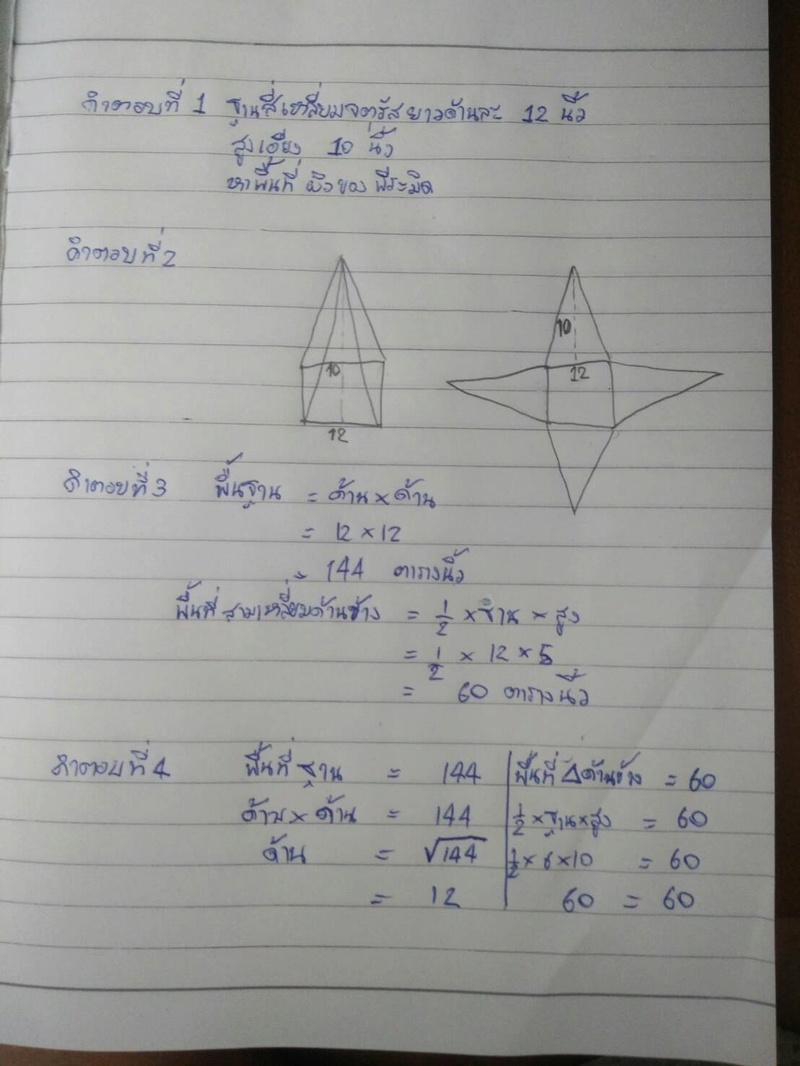 คำตอบที่ 1 ฐานสี่เหลี่ยมจตุรัส ยาวด้านละ 12 นิ้ว
สูงเอียง 10 นิ้ว
หาพื้นที่ ผิวของ พีระมิด
คำตอบที่ 2
10
12
10
12
คำตอบที่ 3 พื้นฐาน = ด้าน × ด้าน
= 12 × 12
= 144 ตารางนิ้ว
พื้นที่ สามเหลี่ยมด้านข้าง = 1/2 × ฐาน × สูง
= 1/2 × 12 × 5
= 60 ตารางนิ้ว
คำตอบที่ 4 พื้นที่ ฐาน = 144 พื้นที่ Δ ด้านข้าง = 60
ด้าน × ด้าน = 144 1/2 × ฐาน × สูง = 60
ด้าน = √144 1/2 × 6 × 10 = 60
= 12 60 = 60